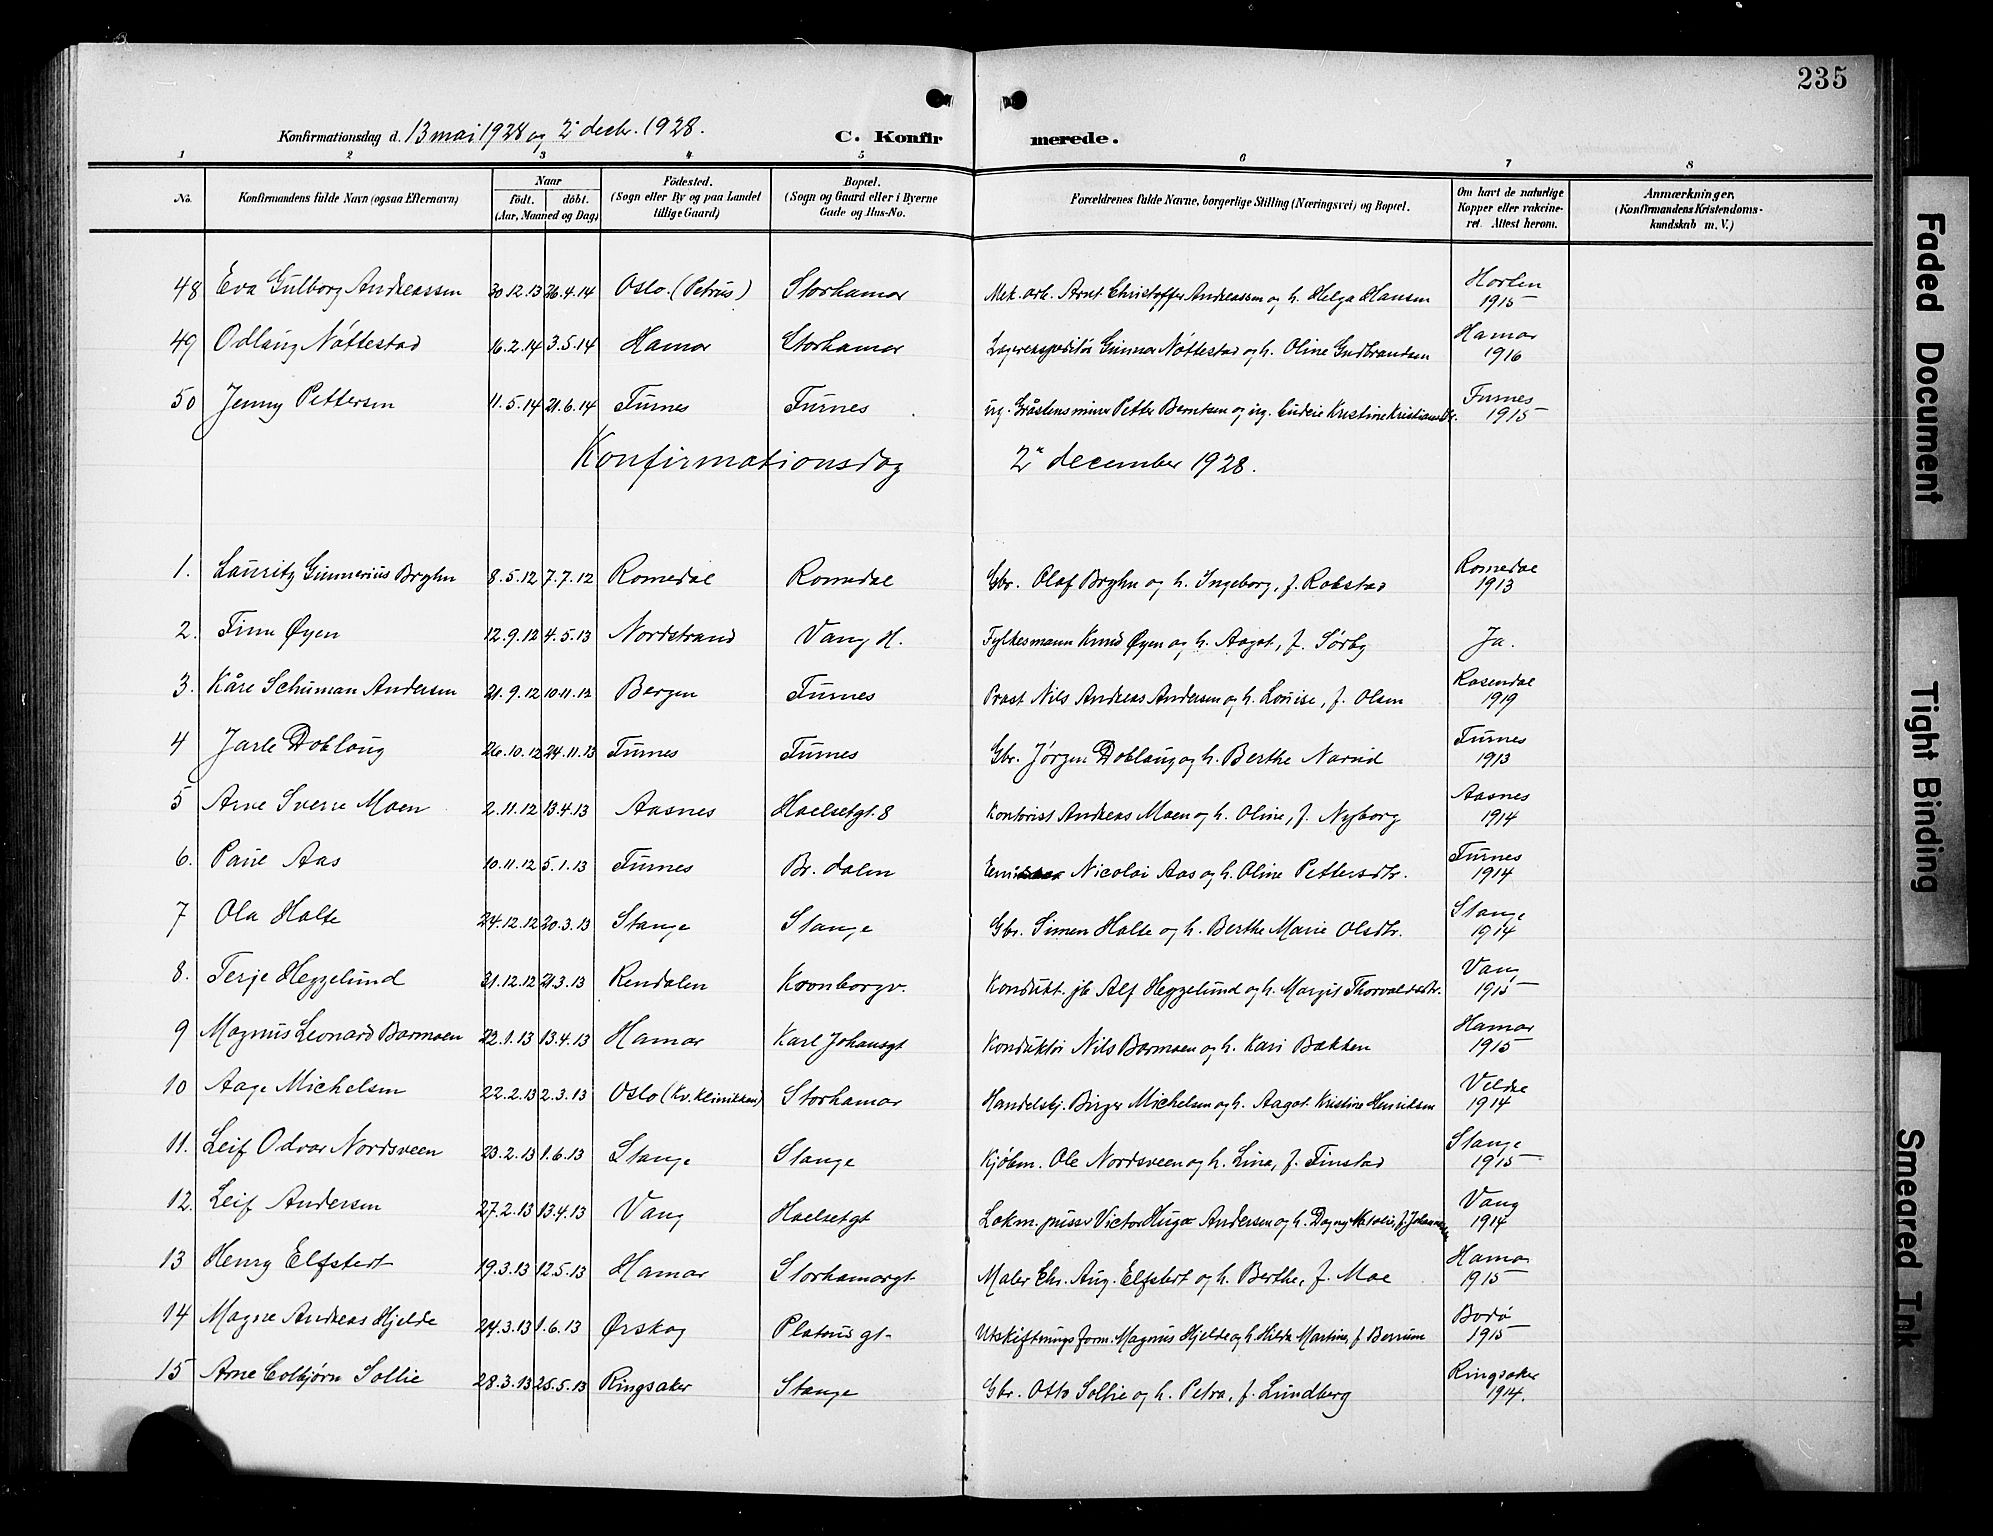 235
Konfirmationsdag d. 13 mai 1928 og 2. decbr. 1928. C. Konfirmerede.
1 2 3 4 5 6 7 8
No. Konfirmandens fulde Navn (ogsaa Efternavn) Naar født. døbt. (Aar, Maaned og Dag) Fødested. (Sogn eller By og paa Landet tillige Gaard) Bopæl. (Sogn og Gaard eller i Byerne Gade og Hus-No. Forældrenes fulde Navne, borgerlige Stilling (Næringsvei) og Bopæl. Om havt de naturlige Kopper eller vakcineret. Attest herom. Anmærkninger, (Konfirmandens Kristendomskundskab m. V.)
48 Eva Gulborg Andreassen 30.12.13 26.4.14 Oslo (Petrus) Storhamar Mek. arb. Arnt Christoffer Andreassen og h. Helga Hansen Horten 1915
49 Odlaug Nøttestad 16.2.14 3.5.14 Hamar Storhamar Lagerekspeditør Gunnar Nøttestad og h. Oline Gudbrandsen Hamar 1916
50 Jenny Pettersen 11.5.14 21.6.14 Furnes Furnes ug. Gråstensminer Petter Berntsen og ug. Kristine Kristiansdtr. Furnes 1915
Konfirmationsdag 2. december 1928.
1. Lauritz Gunnerius Bryhn 8.5.12 7.7.12 Romedal Romedal Gbr. Olaf Bryhn og h. Ingeborg, f. Rokstad Romedal 1913
2. Finn Øyen 12.9.12 4.5.13 Nordstrand Vang H. Fylkesmann Knud Øyen og h. Aagot, f. Sørby Ja.
3. Kåre Schuman Andersen 21.9.12 10.11.12 Bergen Furnes Prost Nils Andreas Andersen og h. Louise, f. Olsen Rosendal 1919
4 Jarle Doblaug 26.10.12 24.11.13 Furnes Furnes Gbr. Jørgen Doblaug og h. Berthe Narud Furnes 1913
5 Arne Sverre Moen 2.11.12 13.4.13 Aasnes Hoelsetgt. 8 Kontorist Andreas Moen og h. Oline, f. Nyborg Aasnes 1914
6. Paul Aas 10.11.12 5.1.13 Furnes Br. dalen Nicolai Aas og h. Oline Pettersdtr. Furnes 1914
7 Ola Holte 24.12.12 20.3.13 Stange Stange Gbr. Simen Holte og h. Berthe Marie Olsdtr. Stange 1914
8. Terje Heggelund 31.12.12 21.3.13 Rendalen Kornborgv. Kondukt. jb Alf Heggelund og h. Margit Thorvaldsdtr. Vang 1915
9 Magnus Leonard Bormoen 22.1.13 13.4.13 Hamar Karl Johansgt Konduktør Nils Bormoen og h. Kari Bækken Hamar 1915
10 Aage Michelsen 22.2.13 2.3.13 Oslo (Kv. klinikken) Storhamar Handelsbj. Birger Michelsen og h. Aagot Kristine Henriksen Veldre 1914
11. Leif Odvar Nordsveen 23.2.13 1.6.13 Stange Stange Kjøbm. Ole Nordsveen og h. Lina, f. Finstad Stange 1915
12. Leif Andersen 27.2.13 13.4.13 Vang Hoelsetgt Lokm. pusser Victor Hugo Andersen og h. Dagny Vang 1914
13 Henry Elfstedt 19.3.13 12.5.13 Hamar Storhamargt Maler Chr. Aug. Elfstedt og h. Berthe, f. Moe Hamar 1915
14 Magne Andreas Hjelde 24.3.13 1.6.13 Ørskog Platousgt. Utskiftningsform. Magnus Hjelde og h. Hilda Martine, f. Berrum Bodø 1915
15 Arne Colbjørn Sollie 28.3.13 25.5.13 Ringsaker Stange Gbr. Otto Sollie og h. Petra, f. Lundberg Ringsaker 1914.
Faded Document
Tight Binding
Smeared Ink